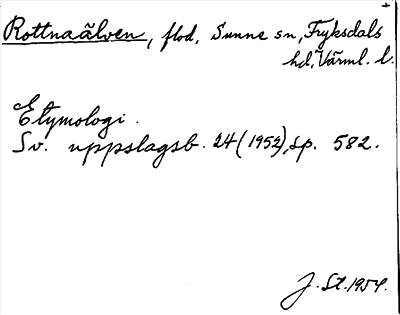 Rottnaälven, flod, Sunne sn, Fryksdals
hd, Värml. l.
Etymologi.
Sv. uppslagsb. 24 (1952), sp. 582.
J. St. 1954.